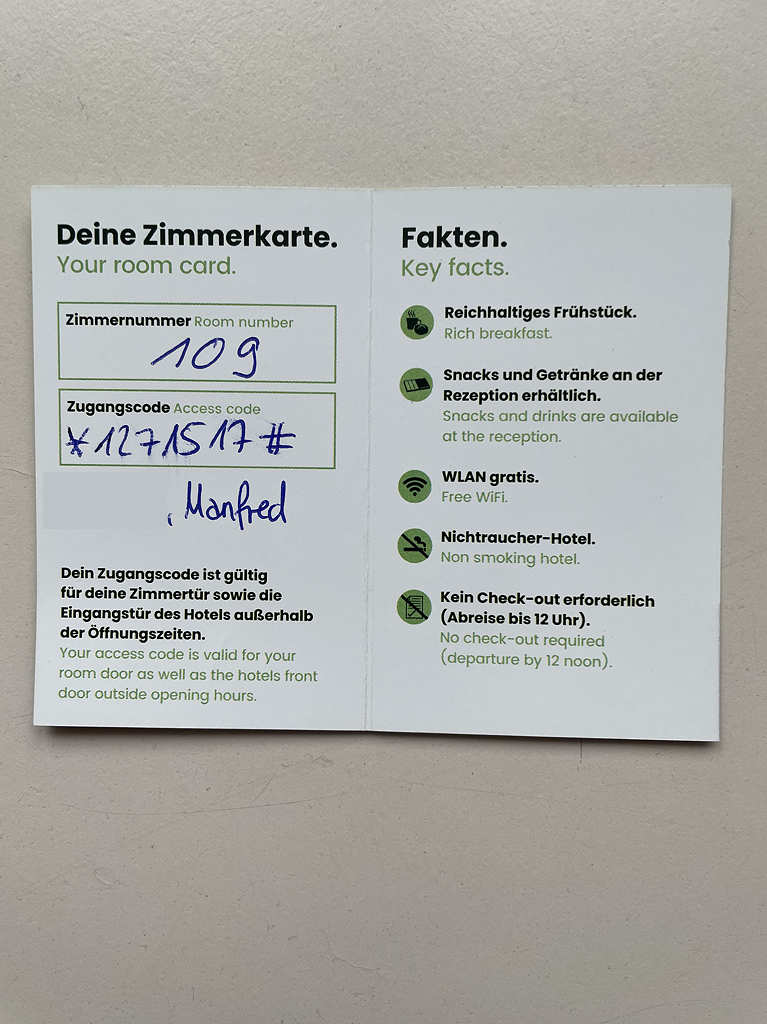 Deine Zimmerkarte.
Your room card.
Zimmernummer Room number
109
Zugangscode Access code
*1271517#
, Manfred
Dein Zugangscode ist gültig
für deine Zimmertür sowie die
Eingangstür des Hotels außerhalb
der Öffnungszeiten.
Your access code is valid for your
room door as well as the hotels front
door outside opening hours.
Fakten.
Key facts.
Reichhaltiges Frühstück.
Rich breakfast.
Snacks und Getränke an der
Rezeption erhältlich.
Snacks and drinks are available
at the reception.
WLAN gratis.
Free WiFi.
Nichtraucher-Hotel.
Non smoking hotel.
Kein Check-out erforderlich
(Abreise bis 12 Uhr).
No check-out required
(departure by 12 noon).